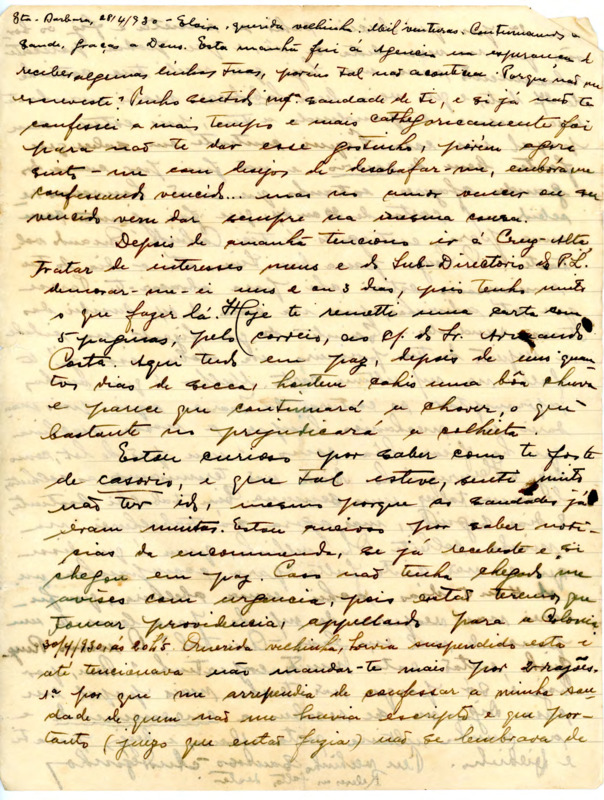 Sta. Barbara, 28/4/930 - Eloira, querida velhinha. Mil venturas. Continuamos c
saude, graças a Deus. Esta manhã fui á Agencia na esperança de
receber algumas linhas tuas, porém tal não aconteceu. Porquê não me
escreveste? Tenho sentido mta. saudade de ti, e si já não te
confessei a mais tempo e mais cathegoricamente foi
para não te dar esse gostinho, porém agora
sinto-me com desejos de desabafar-me, embóra me
confessando vencido... mas no amor vencer ou ser
vencido vem dar sempre na mesma cousa.
Depois de amanhã tenciono ir á Cruz-Alta,
tratar de interesses meus e do Sub-Directorio do P.L.
demorar-me-i uns 2 ou 3 dias, pois tenho muito
o que fazer lá. Hoje te remetti uma carta com
5 paginas, pelo correio, ao c/. do Sr. Armando
Costa. Aqui tudo em paz, depois de uns quan
tos dias de secca, hontem cahio uma bôa chuva
e parece que continuará a chover, o que
bastante nos prejudicará a colheita.
Estou curioso por saber como te foste
de casorio, e que tal esteve, senti muito
não ter ido, mesmo porque as saudades já
eram muitas. Estou ancioso por saber noti-
cias da encommenda, se já recebeste e si
chegou em paz. Caso não tenha chegado me
avises com urgencia, pois então teremos que
tomar providencia, appellando para a Colonia
30/4/930 ás 20h5 Querida velhinha, havia suspendido esta e
até tencionava não mandar-te mais por 2 razões.
1ª por que me arrependia de confessar a minha sau-
dade de quem não me havia escripto e que por-
tanto (juizo que então fazia) não se lembrava de